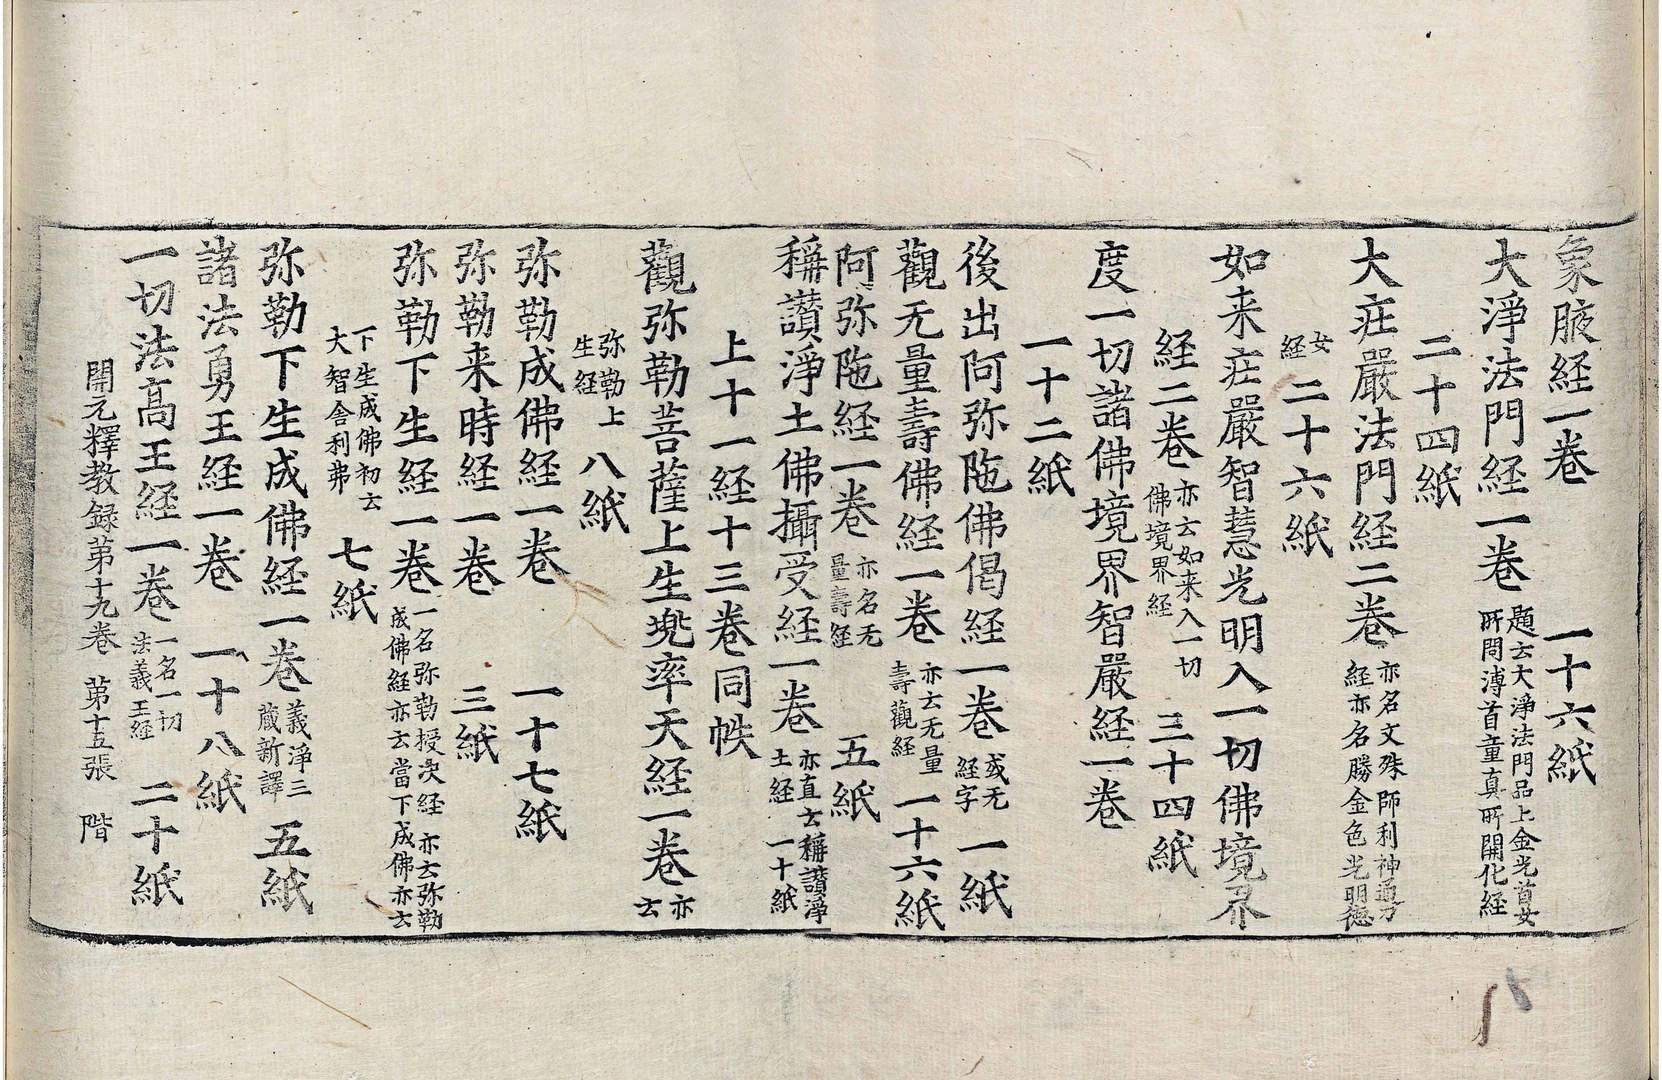 象腋経一卷　一十六紙
大淨法門経一卷 題云大淨法門品上金光首女所問溥首童真所開化経
二十四紙
大疘嚴法門経二卷 亦名文殊師利神通力経亦名勝金色光明德
女経 二十六紙
如来疘嚴智慧光明入一切佛境界
経二卷 亦云如来入一切佛境界経 三十四紙
度一切諸佛境界智嚴経一卷
一十二紙
後出阿弥陁佛偈経一卷 或无経字 一紙
觀无量壽佛経一卷 亦云无量壽觀経 一十六紙
阿弥陁経一卷 亦名无量壽経 五紙
稱讃淨土佛攝受経一卷 亦直云稱讃淨土経 一十紙
上十一経十三卷同帙
觀弥勒菩薩上生兠率天経一卷 亦云
弥勒上生経 八紙
弥勒成佛経一卷　一十七紙
弥勒来時経一卷　三紙
弥勒下生経一卷 一名弥勒授決経亦云弥勒成佛経亦云當下成佛亦云
下生成佛初云大智舎利弗 七紙
弥勒下生成佛経一卷 義淨三藏新譯 五紙
諸法勇王経一卷　一十八紙
一切法高王経一卷 一名一切法義王経 二十紙
開元釋教録苐十九卷　苐十五張　階